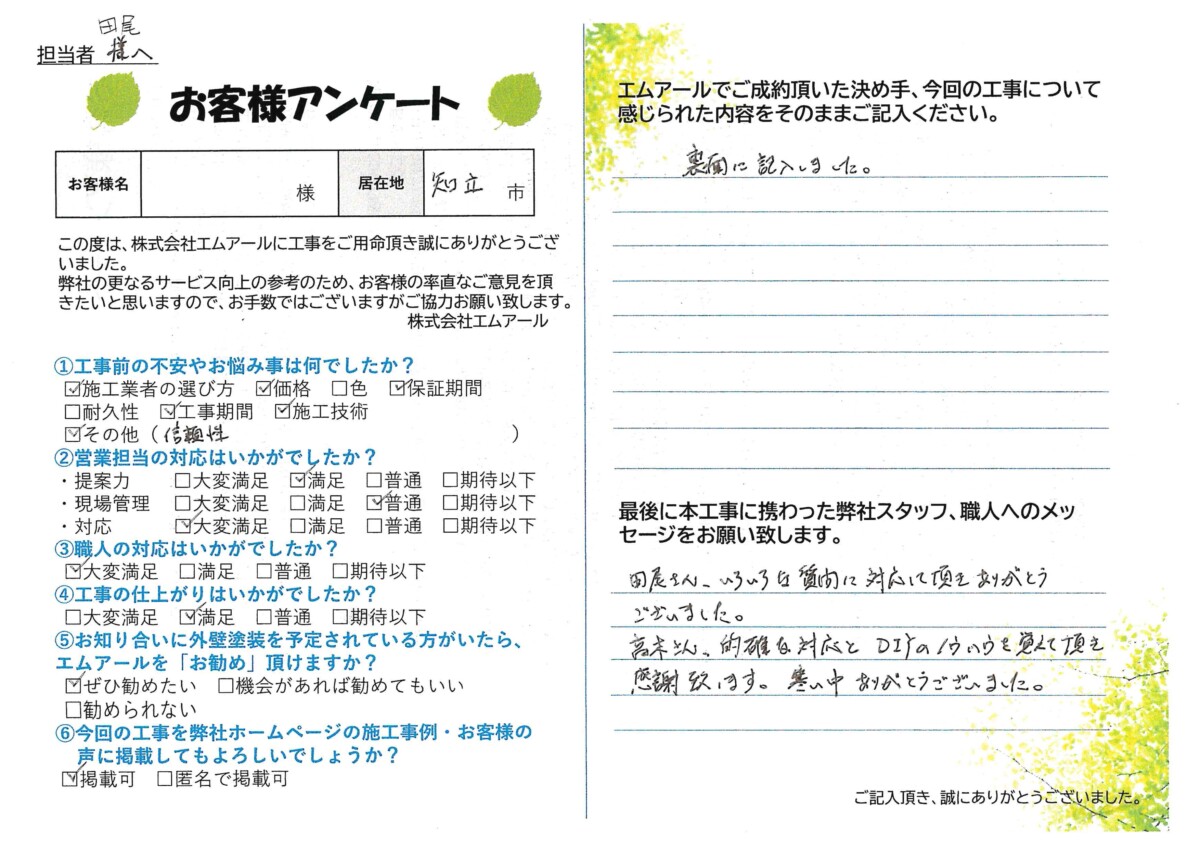 田尾
担当者 様へ
お客様アンケート
お客様名 様 居在地 知立 市
この度は、株式会社エムアールに工事をご用命頂き誠にありがとうござ
いました。
弊社の更なるサービス向上の参考のため、お客様の率直なご意見を頂
きたいと思いますので、お手数ではございますがご協力お願い致します。
株式会社エムアール
①工事前の不安やお悩み事は何でしたか？
☑施工業者の選び方 ☑価格 □色 ☑保証期間
□耐久性 ☑工事期間 ☑施工技術
☑その他（信頼性 ）
②営業担当の対応はいかがでしたか？
・提案力 □大変満足 ☑満足 □普通 □期待以下
・現場管理 □大変満足 □満足 ☑普通 □期待以下
・対応 ☑大変満足 □満足 □普通 □期待以下
③職人の対応はいかがでしたか？
☑大変満足 □満足 □普通 □期待以下
④工事の仕上がりはいかがでしたか？
□大変満足 ☑満足 □普通 □期待以下
⑤お知り合いに外壁塗装を予定されている方がいたら、
エムアールを「お勧め」頂けますか？
☑ぜひ勧めたい □機会があれば勧めてもいい
□勧められない
⑥今回の工事を弊社ホームページの施工事例・お客様の
声に掲載してもよろしいでしょうか？
☑掲載可 □匿名で掲載可
エムアールでご成約頂いた決め手、今回の工事について
感じられた内容をそのままご記入ください。
裏面に記入しました。
最後に本工事に携わった弊社スタッフ、職人へのメッ
セージをお願い致します。
田尾さん、いろいろな質問に対応して頂きありがとう
ございました。
高木さん、的確な対応とDIYのノウハウを覚えて頂き
感謝致します。寒い中ありがとうございました。
ご記入頂き、誠にありがとうございました。